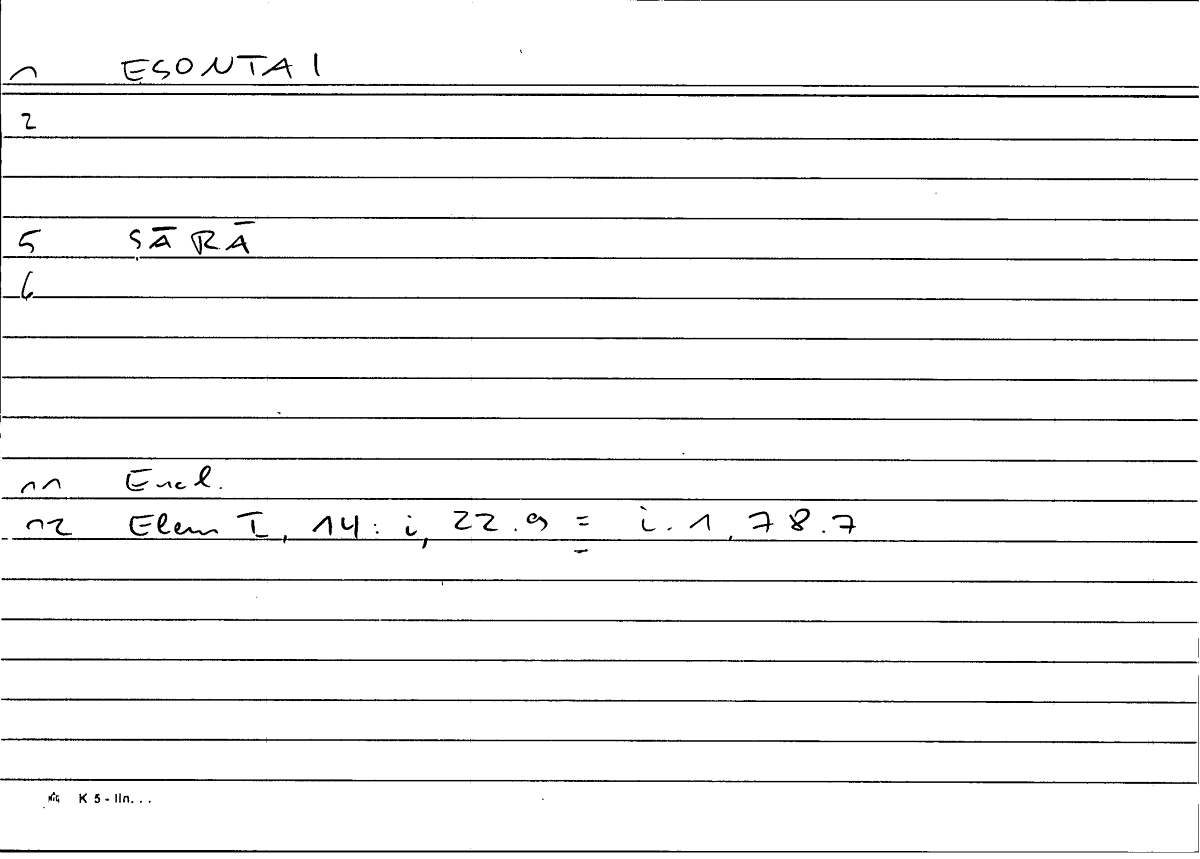 1 ESONTAI
2
5 ṢĀRĀ
6
11 Eucl.
12 Elem I, 14: i, 22.9 = i.1, 78.7
K 5 - lin. . .